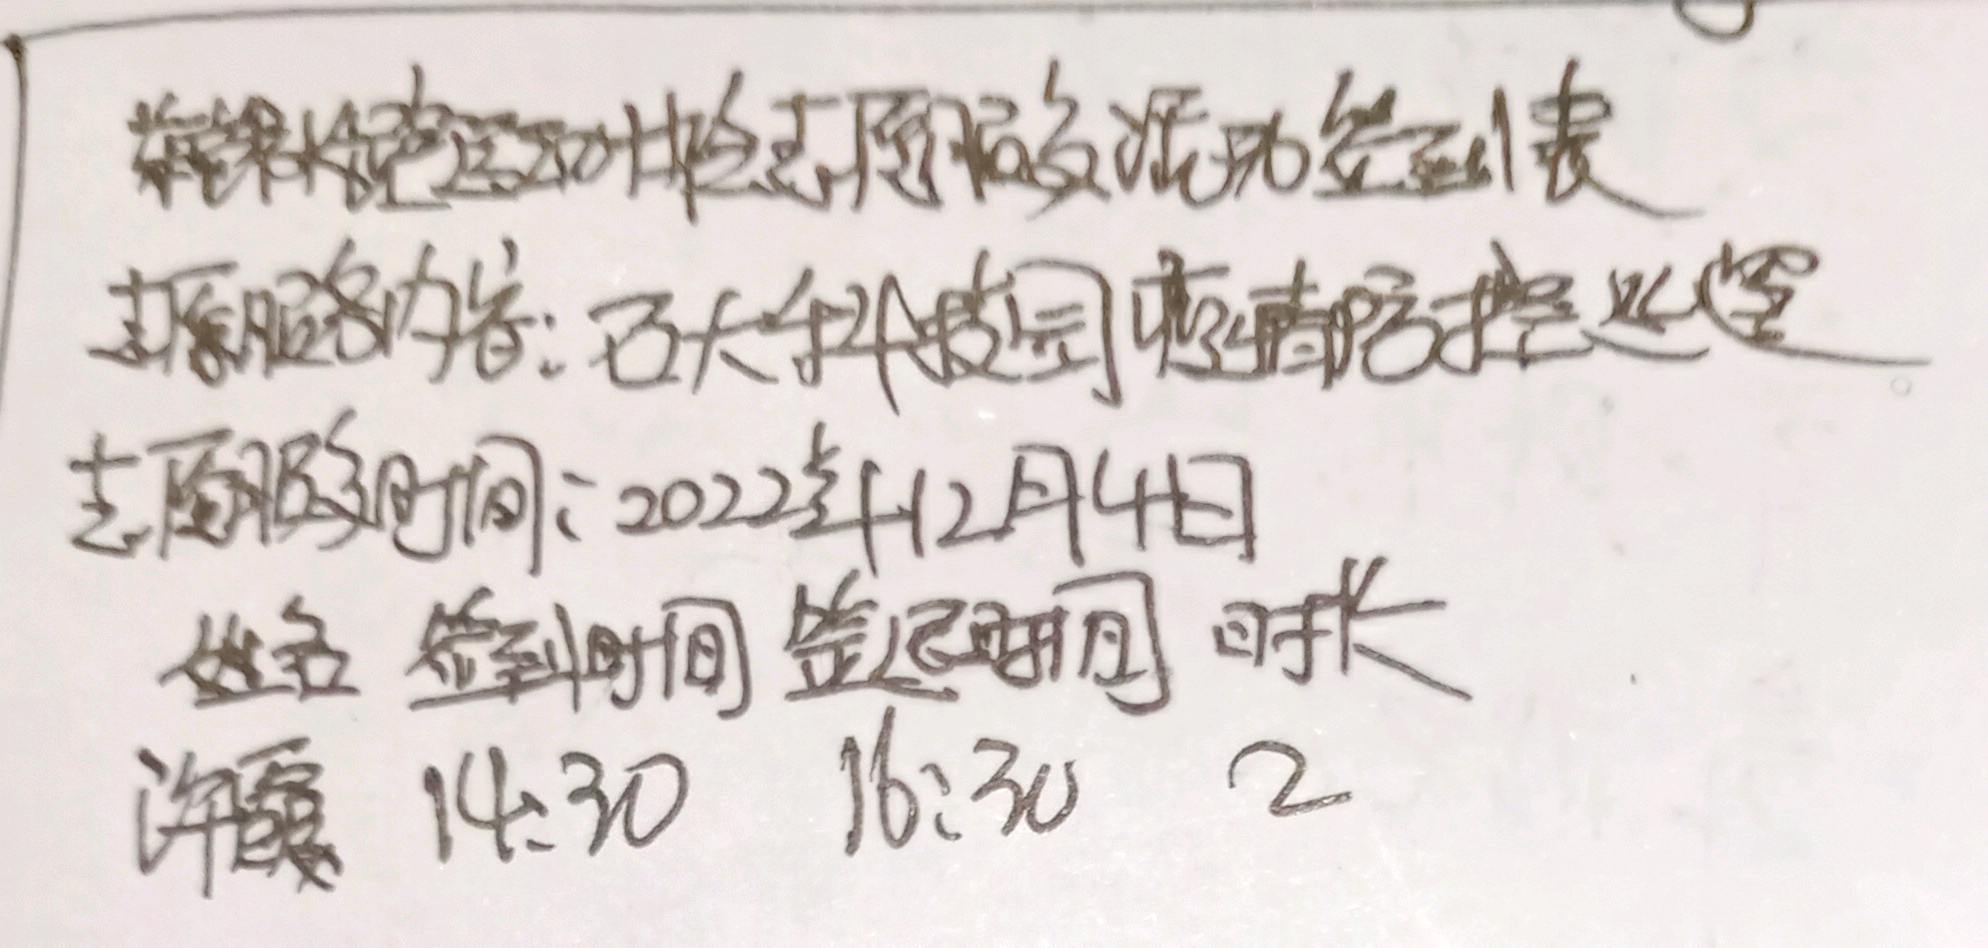 志愿服务活动签到表
志愿服务内容:石大科技园疫情防控巡逻
志愿服务时间:2022年12月4日
姓名 签到时间 签退时间 时长
许霞 14:30 16:30 2